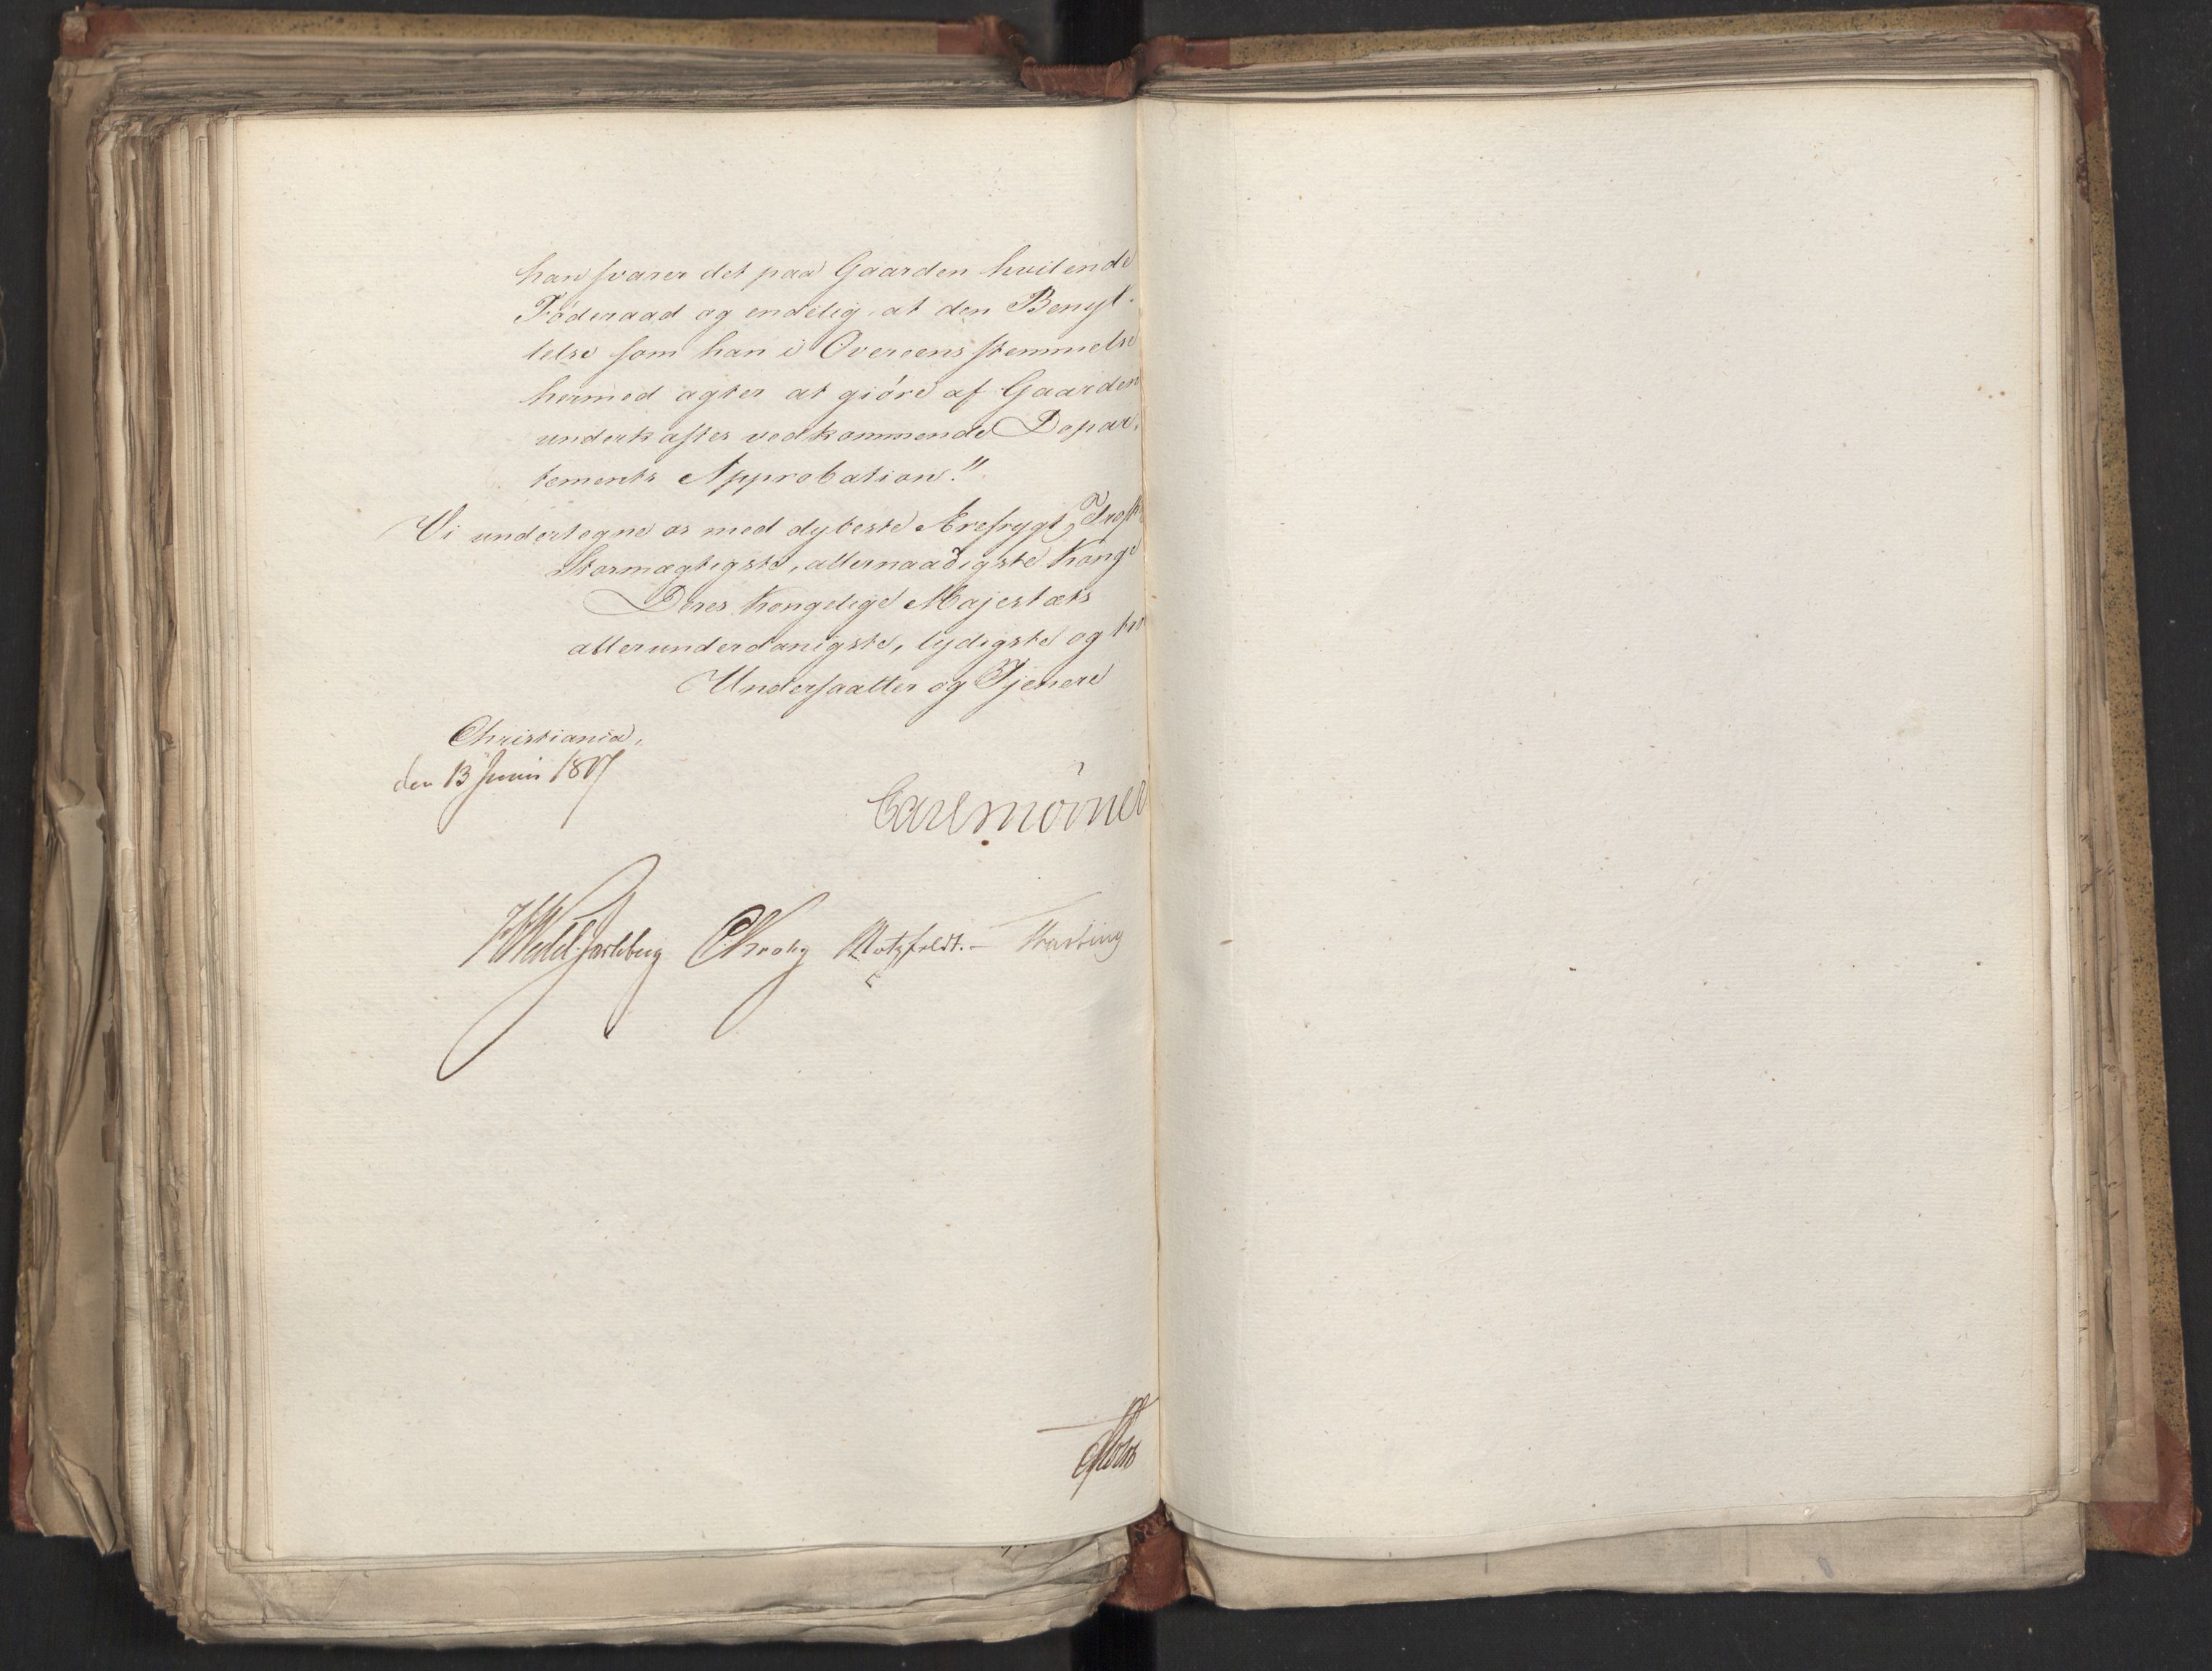 han svarer det paa Gaarden hvilende
Föderaad og endelig, at den Benyt-
telse som han i Overeensstemmelse
hermed agter at giöre af Gaarden
underkastes vedkommende Depar-
tements Approbation."
Vi undertegne os med dybeste Ærefrygt,
Stormægtigste, allernaadigste Konge
Deres Kongelige Majestæts
allerunderdanigste, lydigste og
Undersaatter og Tjenere
Christiania,
den 13 Junii 1817
Carl Mörner
HWedel Jarlsberg CKrohg Motzfeldt. Hasting